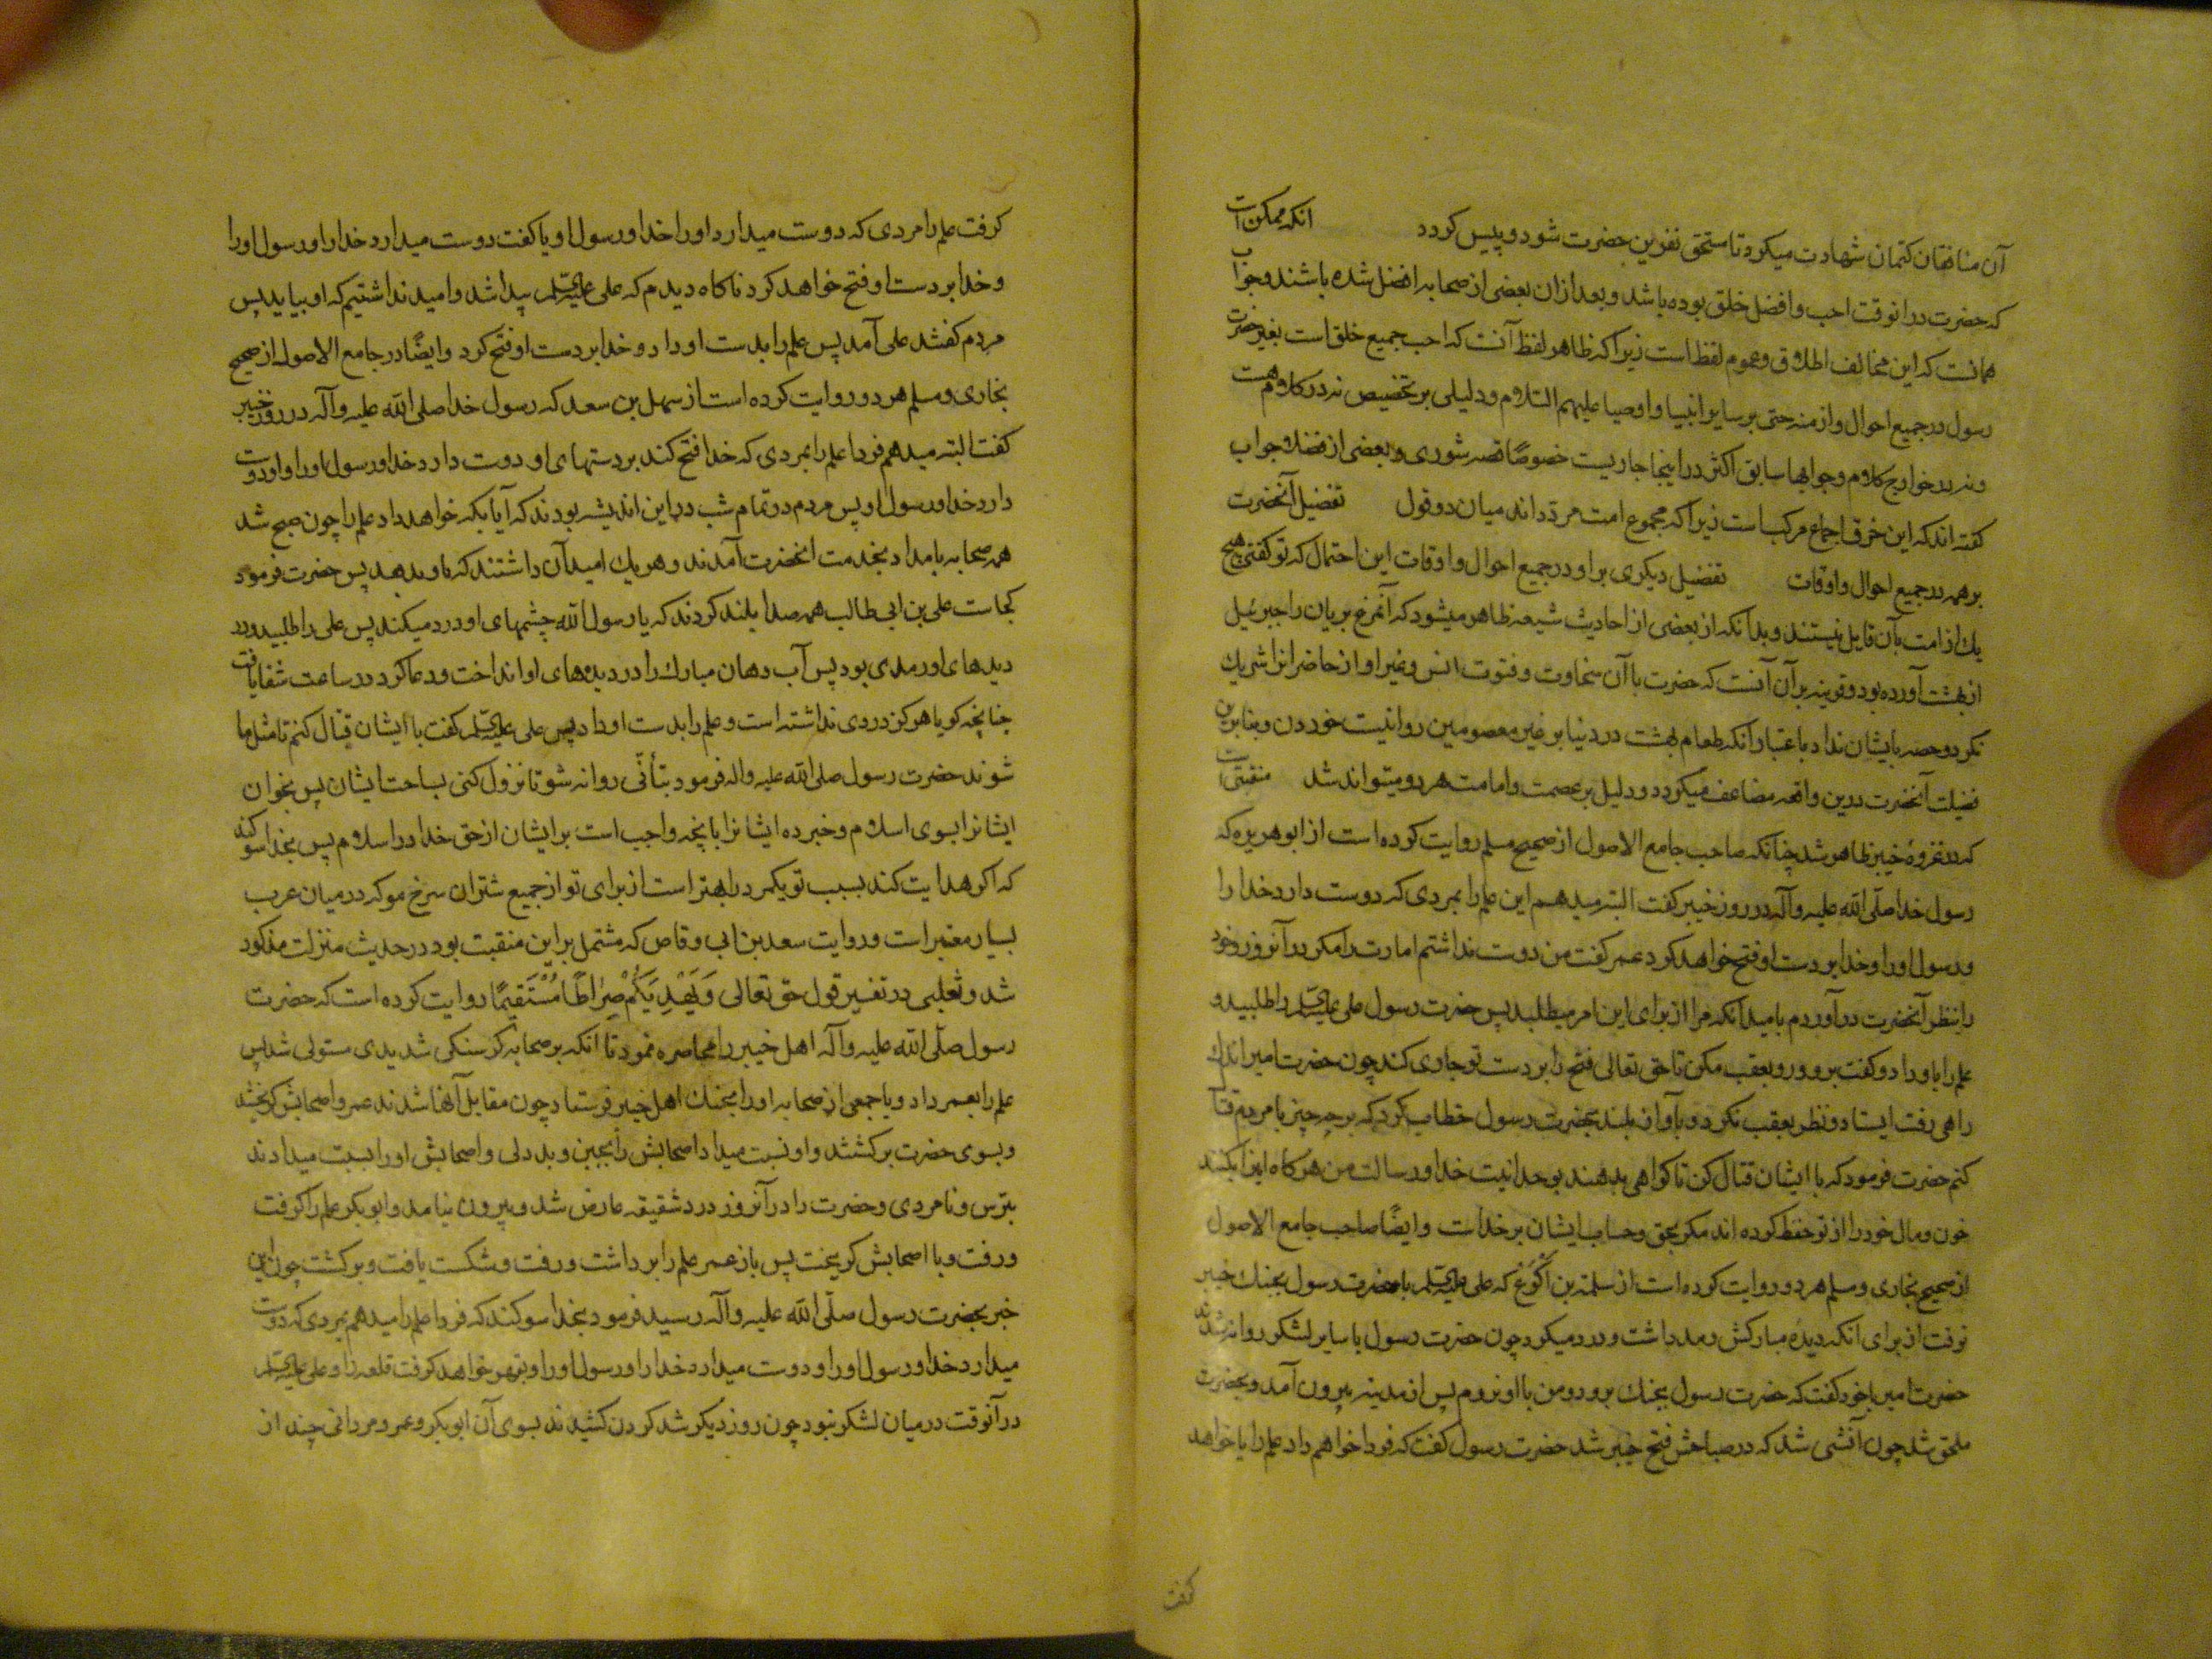 آن منافقان کتمان شهادت میکرد تا مستحق نفرین حضرت شود و پیس کردد انکه ممکن است
که حضرت در انوقت احب و افضل خلق بوده باشد و بعد ازان بعضی از صحابه افضل شده باشند و جواب
همانست که این مخالف اطلاق و عموم لفظ است زیرا که ظاهر لفظ آنست که احب جمیع خلق است بغیر حضرت
رسول در جمیع احوال و ازمنه حتی بر سایر انبیا و اوصیا علیهم السلام و دلیلی بر تخصیص نه در کلام هست
و نه در خوارج کلام و جوابها سابق اکثر در اینجا جاریست خصوصًا قصه شوری و بعضی از فضلا جواب
کفته اند که این خرق اجماع مرکب است زیرا که مجموع امت مردّد اند میان دو قول تفضیل آنحضرت
بر همه در جمیع احوال و اوقات تفضیل دیکری بر او در جمیع احوال و اوقات این احتمال که تو کفتی هیچ
یك از امت بآن قایل نیستند و بدانکه از بعضی از احادیث شیعه ظاهر میشود که آنمرغ بریان را جبرئیل
از بهشت آورده بود و قرینه بر آن آنست که حضرت با آن سخاوت و فتوت انس و غیر او از حاضرانرا شریك
نکرد و حصه بایشان نداد باعتبار انکه طعام بهشت در دنیا بر غیر معصومین روا نیست خوردن و بنابرین
فضیلت آنحضرت درین واقعه مضاعف میکردد و دلیل بر عصمت و امامت هر دو میتواند شد منقبتی است
که در غزوهٔ خیبر ظاهر شد چنانکه صاحب جامع الاصول از صحیح مسلم روایت کرده است از ابو هریره که
رسول خدا صلّی الله علیه و آله در روز خیبر کفت البته میدهم این علم را بمردی که دوست دارد خدا را
و رسول او را و خدا بر دست او فتح خواهد کرد عمر کفت من دوست نداشتم امارت را مکر در آنروز و خود
را بنظر آنحضرت در آوردم بامید آنکه مرا از برای این امر میطلبد پس حضرت رسول علی علیه السلام را طلبید و
علم را باو داد و کفت برو و رو بعقب مکن تا حق تعالی فتح را بر دست تو جاری کند چون حضرت امیر اندك
راهی رفت ایستاد و نظر بعقب نکرد و بآواز بلند بحضرت رسول خطاب کرد که بر چه چیز با مردم قتال
کنم حضرت فرمود که با ایشان قتال کن تا کواهی بدهند بوحدانیت خدا و رسالت من هر کاه اینرا بکنند
خون و مال خود را از تو حفظ کرده اند مکر بحق و حساب ایشان بر خداست و ایضًا صاحب جامع الاصول
از صحیح بخاری و مسلم هر دو روایت کرده است از سلمة بن اکوع که علی علیه السلام با حضرت رسول بجنك خیبر
نرفت از برای انکه دیده مبارکش رمد داشت و درد میکرد چون حضرت رسول با سایر لشکر روانه شدند
حضرت امیر با خود کفت که حضرت رسول بجنك برود و من با او نروم پس از مدینه بیرون آمد و بحضرت
ملحق شد چون آنشی شد که در صباحش فتح خیبر شد حضرت رسول کفت که فردا خواهم داد علم را یا خواهد
کفت
کرفت علم را مردی که دوست میدارد او را خدا و رسول او یا کفت دوست میدارد خدا را و رسول او را
و خدا بر دست او فتح خواهد کرد ناکاه دیدم که علی علیه السلام پیدا شد و امید نداشتیم که او بیاید پس
مردم کفتند علی آمد پس علم را بدست او داد و خدا بر دست او فتح کرد و ایضًا در جامع الاصول از صحیح
بخاری و مسلم هر دو روایت کرده است از سهل بن سعد که رسول خدا صلی الله علیه و آله در روز خیبر
کفت البته میدهم فردا علم را بمردی که خدا فتح کند بر دستهای او دوست دارد خدا و رسول او را و او دوست
دارد خدا و رسول او پس مردم در تمام شب در این اندیشه بودند که آیا بکه خواهد داد علم را چون صبح شد
همه صحابه بامداد بخدمت انحضرت آمدند و هر یك امید آن داشتند که باو بدهد پس حضرت فرمود
کجاست علی بن ابی طالب همه صدا بلند کردند که یا رسول الله چشمهای او درد میکند پس علی را طلبید و در
دیدهای او رمدی بود پس آب دهان مبارك را در دیدهای او انداخت و دعا کرد در ساعت شفا یافت
چنانچه کویا هرکز دردی نداشته است و علم را بدست او داد پس علی علیه السلام کفت با ایشان قتال کنم تا مثل ما
شوند حضرت رسول صلی الله علیه و اله فرمود بتأنّی روانه شو تا نزول کنی بساحت ایشان پس بخوان
ایشانرا بسوی اسلام و خبر ده ایشانرا بانچه واجب است بر ایشان از حق خدا در اسلام پس بخدا سوکند
که اکر هدایت کند بسبب تو یکمرد را بهتر است از برای تو از جمیع شتران سرخ مو که در میان عرب
بسیار معتبر است و روایت سعد بن ابی وقاص که مشتمل بر این منقبت بود در حدیث منزلت مذکور
شد و ثعلبی در تفسیر قول حق تعالی وَيَهْدِيَكُمْ صِرٰاطًا مُسْتَقِيمًا روایت کرده است که حضرت
رسول صلّی الله علیه و آله اهل خیبر را محاصره نمود تا انکه بر صحابه کرسنکی شدیدی مستولی شد پس
علم را بعمر داد و با جمعی از صحابه او را بجنك اهل خیبر فرستاد چون مقابل آنها شدند عمر و اصحابش کریختند
و بسوی حضرت برکشتند و او نسبت میداد اصحابش را بجبن و بددلی و اصحابش او را نسبت میدادند
بترس و نامردی و حضرت را در آنروز درد شقیقه عارض شد و بیرون نیامد و ابو بکر علم را کرفت
و رفت و با اصحابش کریخت پس باز عمر علم را برداشت و رفت و شکست یافت و برکشت چون این
خبر بحضرت رسول صلّی الله علیه و آله رسید فرمود بخدا سوکند که فردا علم را میدهم بمردی که دوست
میدارد خدا و رسول او را و دوست میدارد خدا را و رسول او را و بقهر خواهد کرفت قلعه را و علی علیه السلام
در آنوقت در میان لشکر نبود چون روز دیکر شد کردن کشیدند بسوی آن ابو بکر و عمر و مردانی چند از